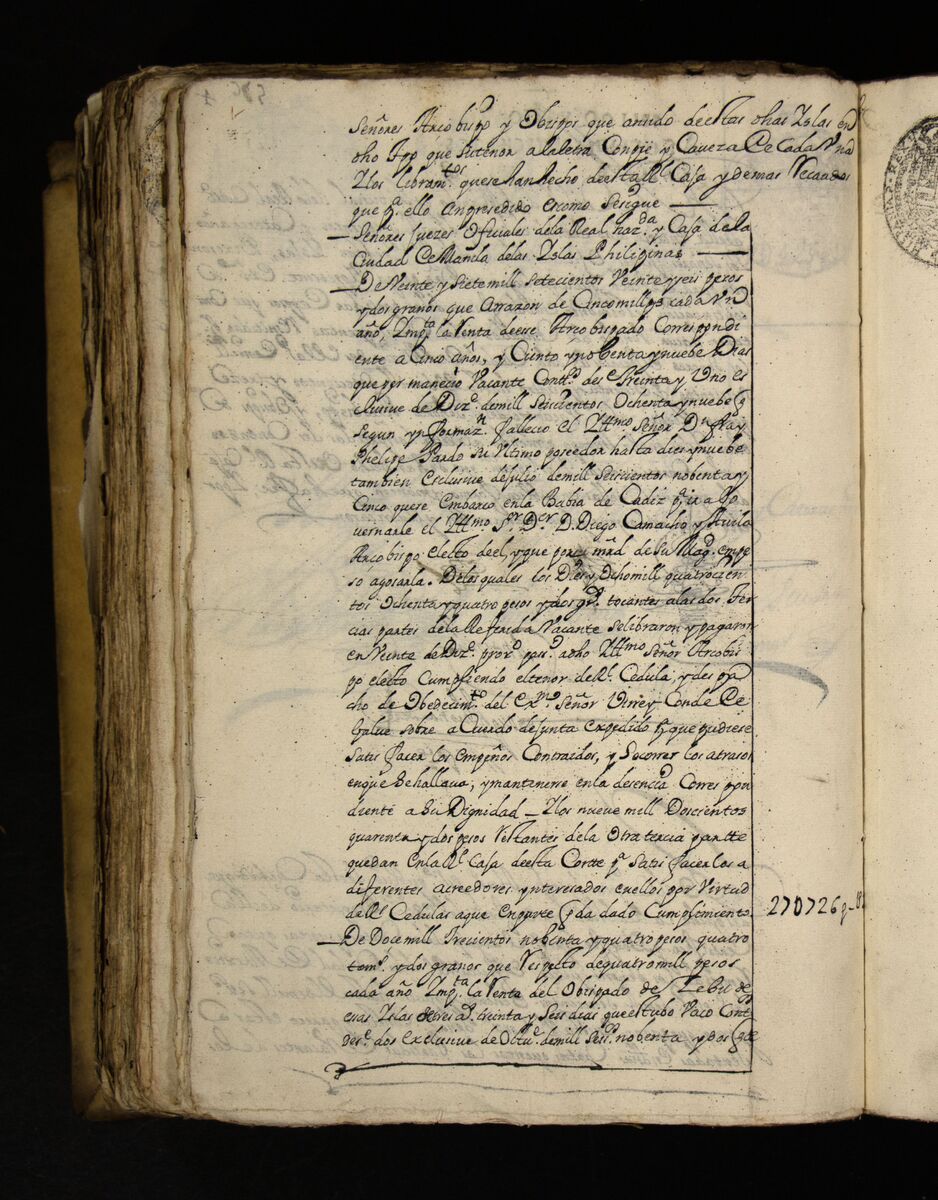 Señores Arcobispp y Obispps que anido deestas dhas Yslas en
dho tpp que Sutenor alaletra Conpie y Caveza De Cada Vna
Ylos libram.tos quese han hecho deesta R.l Casa y demas Recaudos
que p.a ello an presedido Escomo Sesigue
Señores Juezes Oficiales dela Real haz.da y Casa dela
Ciudad De Manila delas Yslas Philipinas
De Veinte y Sietemill Setecientos Veinte yseis pesos
ydos granos que Arrazon de Cincomill ps cada Vn
año, Ymp.ta la Renta deese Arcobispado Correspondi
ente a Cinco años, y Ciento ynobenta ynuebe Dias
que permanecio Vacante Cont.s des.e treinta y Uno es
clusive de Diz.e demill Seiscientos Ochenta ynuebe
Segun ynformaz.n fallecio el Yllmo Señor D.n fray
Phelipe Pardo Su Vltimo poseedor hasta diez ynuebe
tambien Esclusive dejulio demill Seiscientos nobenta y
Cinco quese Embarco enla Bahia de Cadiz p.a ir a Go
vernarle el Yllmo S.or D.or D. Diego Camacho y Avila
Arcobispo electo deel, yque por m.rd de Su Mag.d empe
so agosarla. Delos quales los Diez y Ochomill quatrocien
tos Ochenta yquatro pesos ydos gr.s tocantes alas dos ter
cias partes dela Referida Vacante selibraron y pagaron
en Veinte de Diz.e prox.o pas.o adho Yllmo Señor Arcobis
po electo Cumpliendo eltenor de R.l Cedula, y despa
cho de Obedecim.to del Ex.mo Señor Virrey Conde De
Galve sobre aCuerdo dejunta expedido p.a que pudiese
Satisfacer los empeños Contraidos, y Socorrer los atrasos
enque Sehallava, y mantenerse enla desencia Correspon
diente a Su Dignidad _ Ylos nueve mill Doscientos
quarenta ydos pesos Restantes dela Otra tercia partte
quedan Enla R.l Casa deesta Corte p.a Satisfacerlos a
diferentes acreedores ynteresados enellos por Virtud
de R.s Cedulas aque Enparte se ha dado Cumplimiento. 27U726 p
De Docemill trecientos nobenta yquatro pesos quatro
tom.s ydos granos que Respecto dequatromill pesos
cada año Ymp.ta la Renta del Obispado de Zebu de
esas Yslas detres a.s treinta y Seis dias que estubo Vaco Cont
des.e dos Exclusive de Octu.e demill Seis.s nobenta ydos